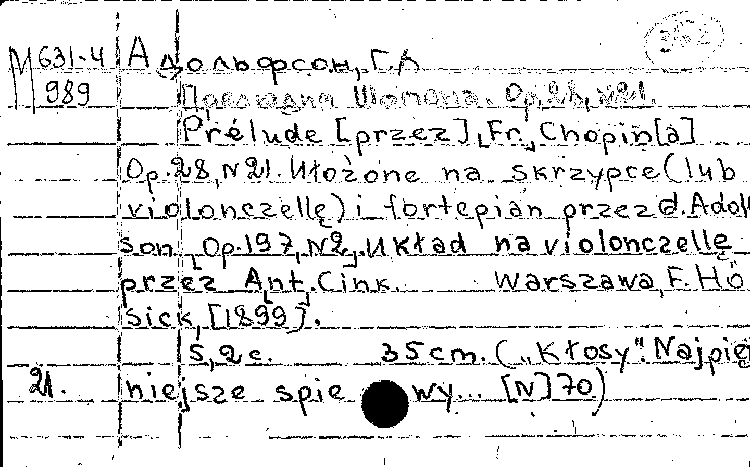 352
М 631-4 Адольфсон, Г.А
989 Прелюдия Шопена. Op.28, №21.
Prélude [przez] Fr. Chopin[a]
Op.28, N21. Ułożone na skrzypce (lub
violonczellę) i fortepian przez d. Adolf
son, Op.197, N2. Układ na violonczellę
przez Ant. Cink. Warszawa, F. Hö
sick, [1899].
5, 2 с. 35 cm. („Kłosy". Najpię
21. kniejsze spie wy... [N] 70)